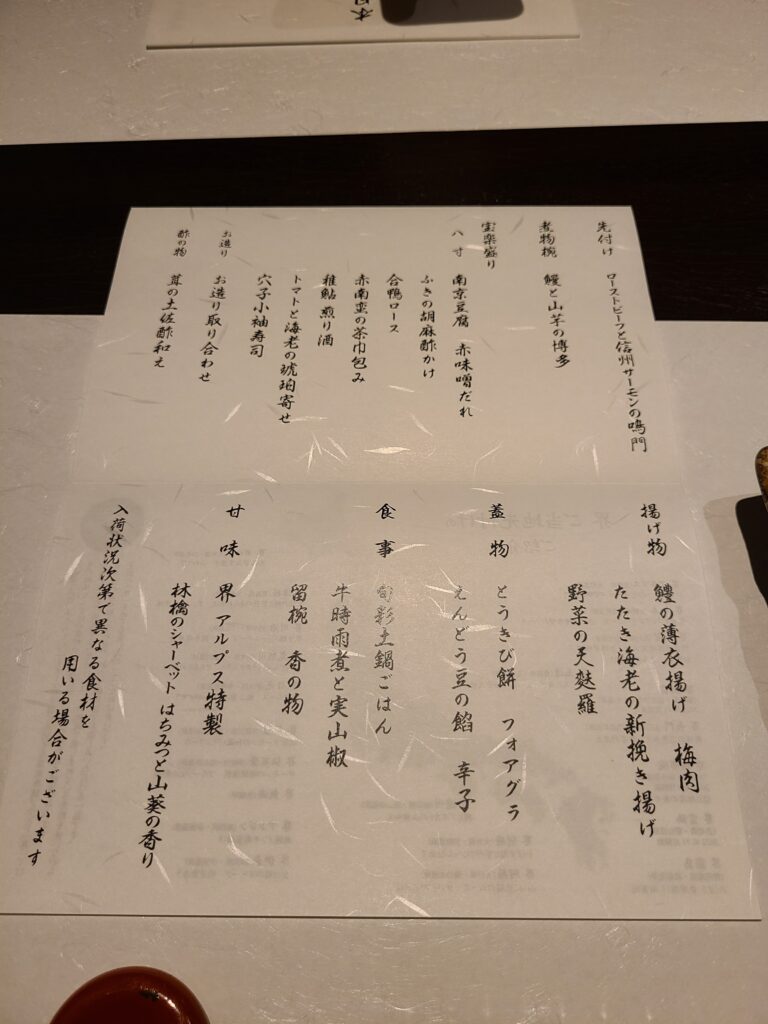 先付け　ローストビーフと信州サーモンの鳴門
煮物椀　鰻と山芋の博多
宝楽盛り
八寸　南京豆腐　赤味噌だれ
ふきの胡麻酢かけ
合鴨ロース
赤南蛮の茶巾包み
稚鮎煎り酒
トマトと海老の琥珀寄せ
穴子小袖寿司
お造り　お造り取り合わせ
酢の物　茸の土佐酢和え
揚げ物　鱧の薄衣揚げ　梅肉
たたき海老の新挽き揚げ
野菜の天麩羅
蓋物　とうきび餅　フォアグラ
えんどう豆の餡　辛子
食事　旬彩土鍋ごはん
牛時雨煮と実山椒
留椀　香の物
甘味　界 アルプス特製
林檎のシャーベット はちみつと山葵の香り
入荷状況次第で異なる食材を
用いる場合がございます